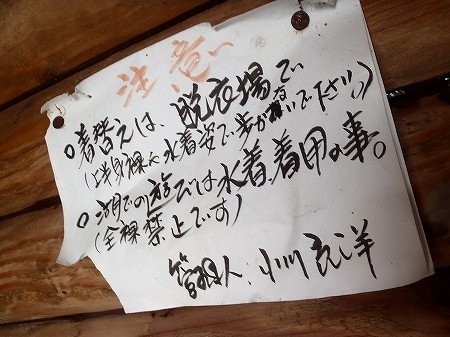 注意
○着替えは、脱衣場で
(上半身裸や水着姿で歩かないで下さい)
○湖での遊びは水着着用の事。
(全裸禁止です)
管理人、小川